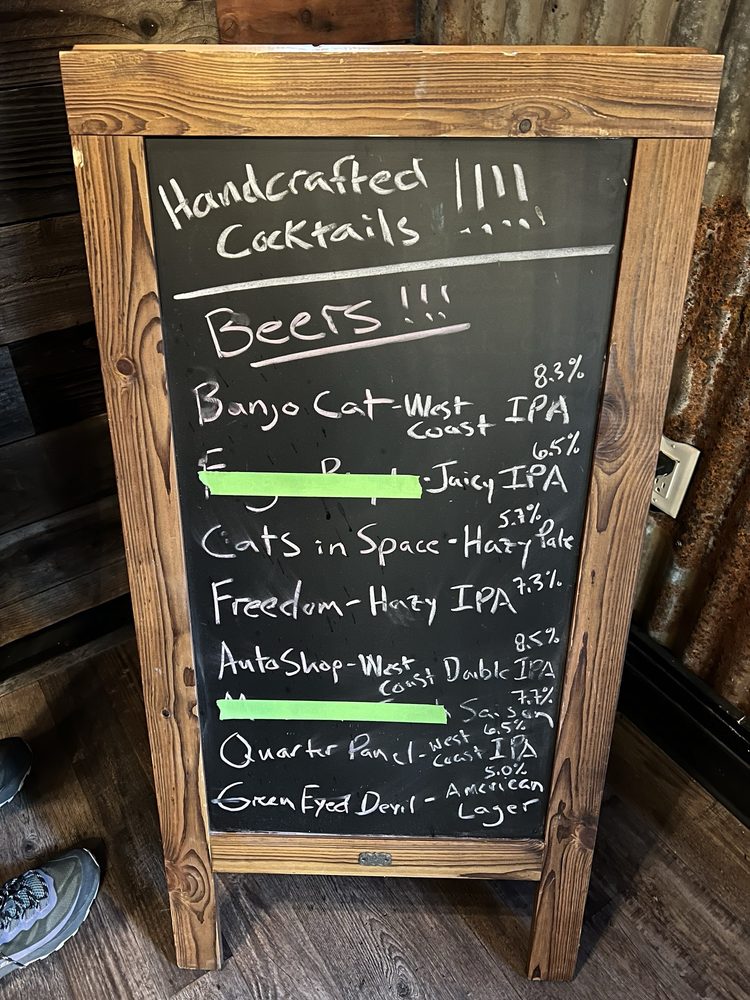 Handcrafted !!!!
Cocktails
Beers !!!
Banjo Cat - West Coast IPA 8.3%
- Juicy IPA 6.5%
Cats in Space - Hazy Pale 5.7%
Freedom - Hazy IPA 7.3%
AutoShop - West Coast Double IPA 8.5%
Saison 7.7%
Quarter Panel - West Coast IPA 6.5%
Green Eyed Devil - American Lager 5.0%